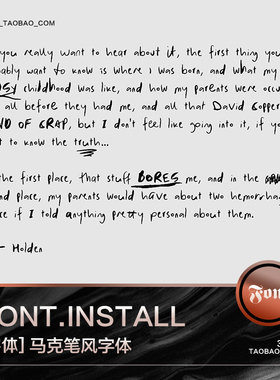 TAOBAO_COM
you really want to hear about it, the first thing you
bably want to know is where I was born, and what my
USY childhood was like, and how my parents were occu
all before they had me, and all that David Copper
ND OF CRAP, but I don't feel like going into it, if yo
t to know the truth...
the first place, that stuff BORES me, and in the
nd place, my parents would have about two hemorrha
e if I told anything pretty personal about them.
- Holden
Fon
ONT.INSTALL
体] 马克笔风字体
TAOBAO